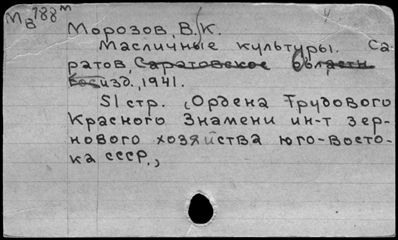 Мв 188 м
Морозов, В.К.
Масличные культуры. Са-
ратов, Саратовское област.
изд., 1941.
51 стр. (Ордена Трудового
Красного Знамени ин-т зер-
нового хозяйства юго-восто-
ка СССР.,